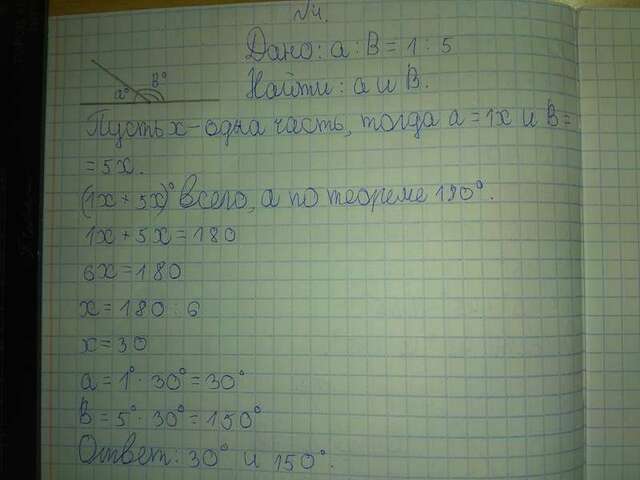 №4.
Дано: a : B = 1 : 5
Найти: a и B.
a° B°
Пусть x - одна часть, тогда a = 1x и B =
= 5x.
(1x + 5x)° всего, а по теореме 190°.
1x + 5x = 180
6x = 180
x = 180 : 6
x = 30
a = 1° · 30° = 30°
B = 5° · 30° = 150°
Ответ: 30° и 150°.